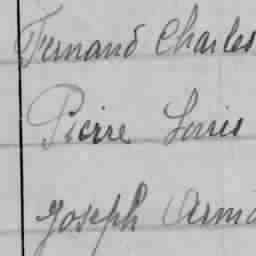 Fernand Charles
Pierre Louis
Joseph